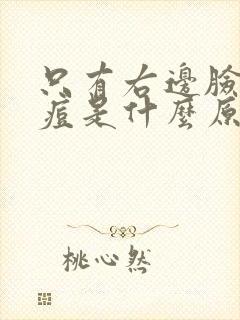 只有右邊臉
痘是什麼原
桃心然